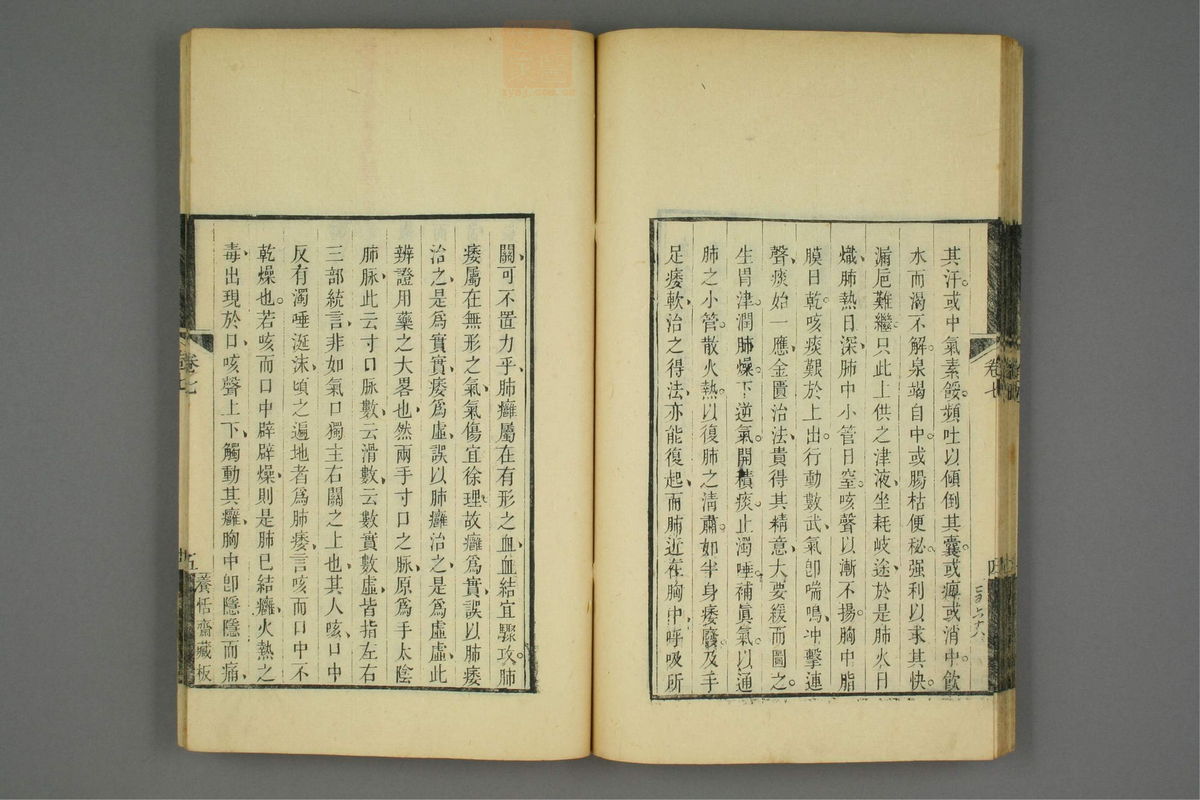 其汗或中氣素餒頻吐以傾倒其囊或癉或消中飲
水而渴不解泉竭自中或腸枯便秘强利以求其快
漏巵難繼只此上供之津液坐耗岐途於是肺火日
熾肺熱日深肺中小管日窒咳聲以漸不揚胸中脂
膜日乾咳痰艱於上出行動數武氣卽喘鳴冲擊連
聲痰始一應金匱治法貴得其精意大要緩而圖之
生胃津潤肺燥下逆氣開積痰止濁唾補眞氣以通
肺之小管散火熱以復肺之淸肅如半身痿廢及手
足痿軟治之得法亦能復起而肺近在胸中呼吸所
卷七
四
關可不置力乎肺癰屬在有形之血血結宜驟攻肺
痿屬在無形之氣氣傷宜徐理故癰爲實誤以肺痿
治之是爲實實痿爲虛誤以肺癰治之是爲虛虛此
辨證用藥之大畧也然兩手寸口之脈原爲手太陰
肺脈此云寸口脈數云滑數云數實數虛皆指左右
三部統言非如氣口獨主右關之上也其人咳口中
反有濁唾涎沫頃之遍地者爲肺痿言咳而口中不
乾燥也若咳而口中辟辟燥則是肺已結癰火熱之
毒出現於口咳聲上下觸動其癰胸中卽隱隱而痛
卷七
五
養恬齋藏板